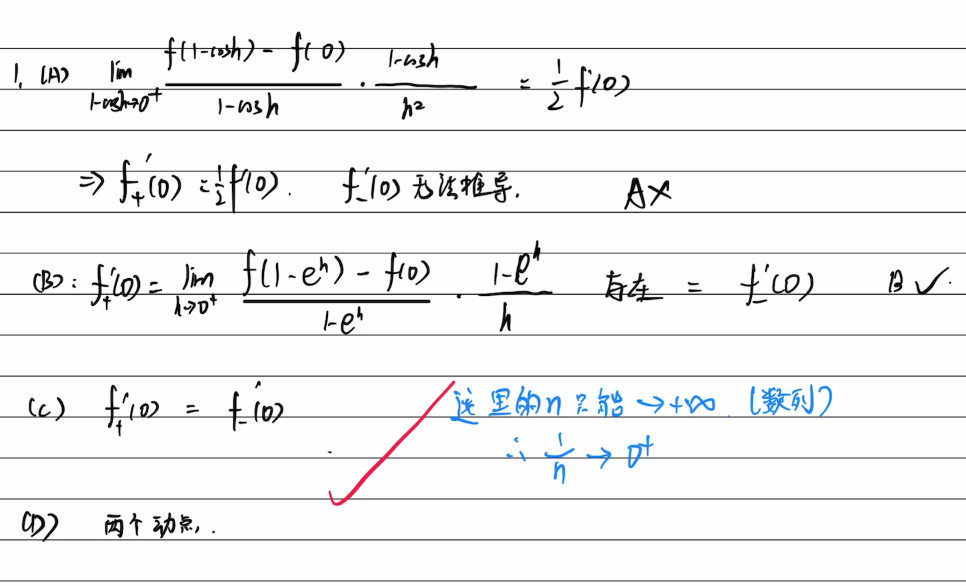 1. (A) lim 1-cosh→0⁺ f(1-cosh) - f(0) / 1-cosh · 1-cosh / h² = 1/2 f'(0)
⇒ f₊'(0) = 1/2 f'(0). f₋'(0) 无法推导. A×
(B): f₊'(0) = lim h→0⁺ f(1-eʰ) - f(0) / 1-eʰ · 1-eʰ / h 存在 = f₋'(0) B✓.
(C) f₊'(0) = f₋'(0) 这里的n只能→+∞. (数列)
∴ 1/n → 0⁺
(D) 两个动点,.